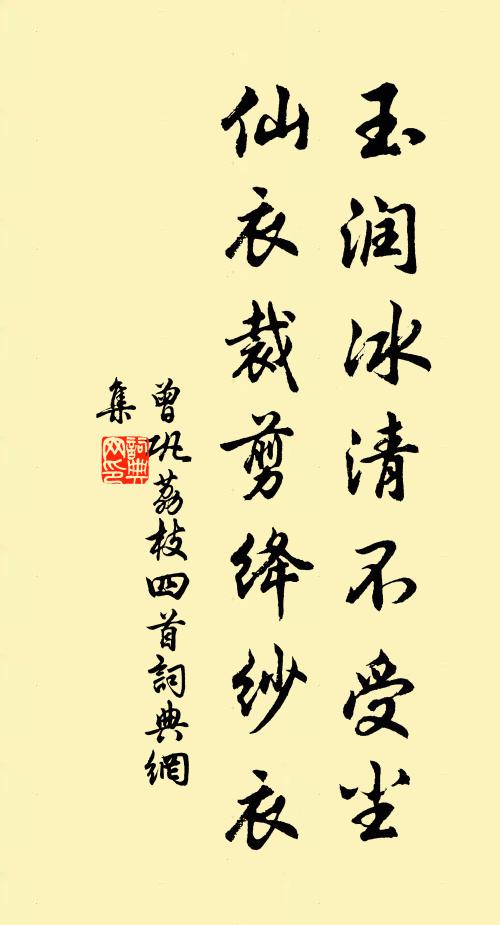 玉润冰清不受尘
仙衣裁剪绛纱衣
曾巩荔枝四首詞典網
集
詞典
网印